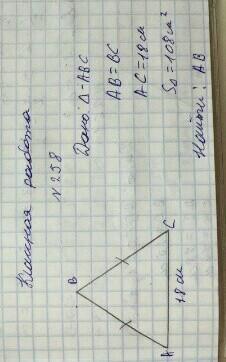 Классная работа
N 258
Дано: Δ-ABC
AB=BC
A-C=18см
S△=108см²
Найти: AB
B
C
A
18 см